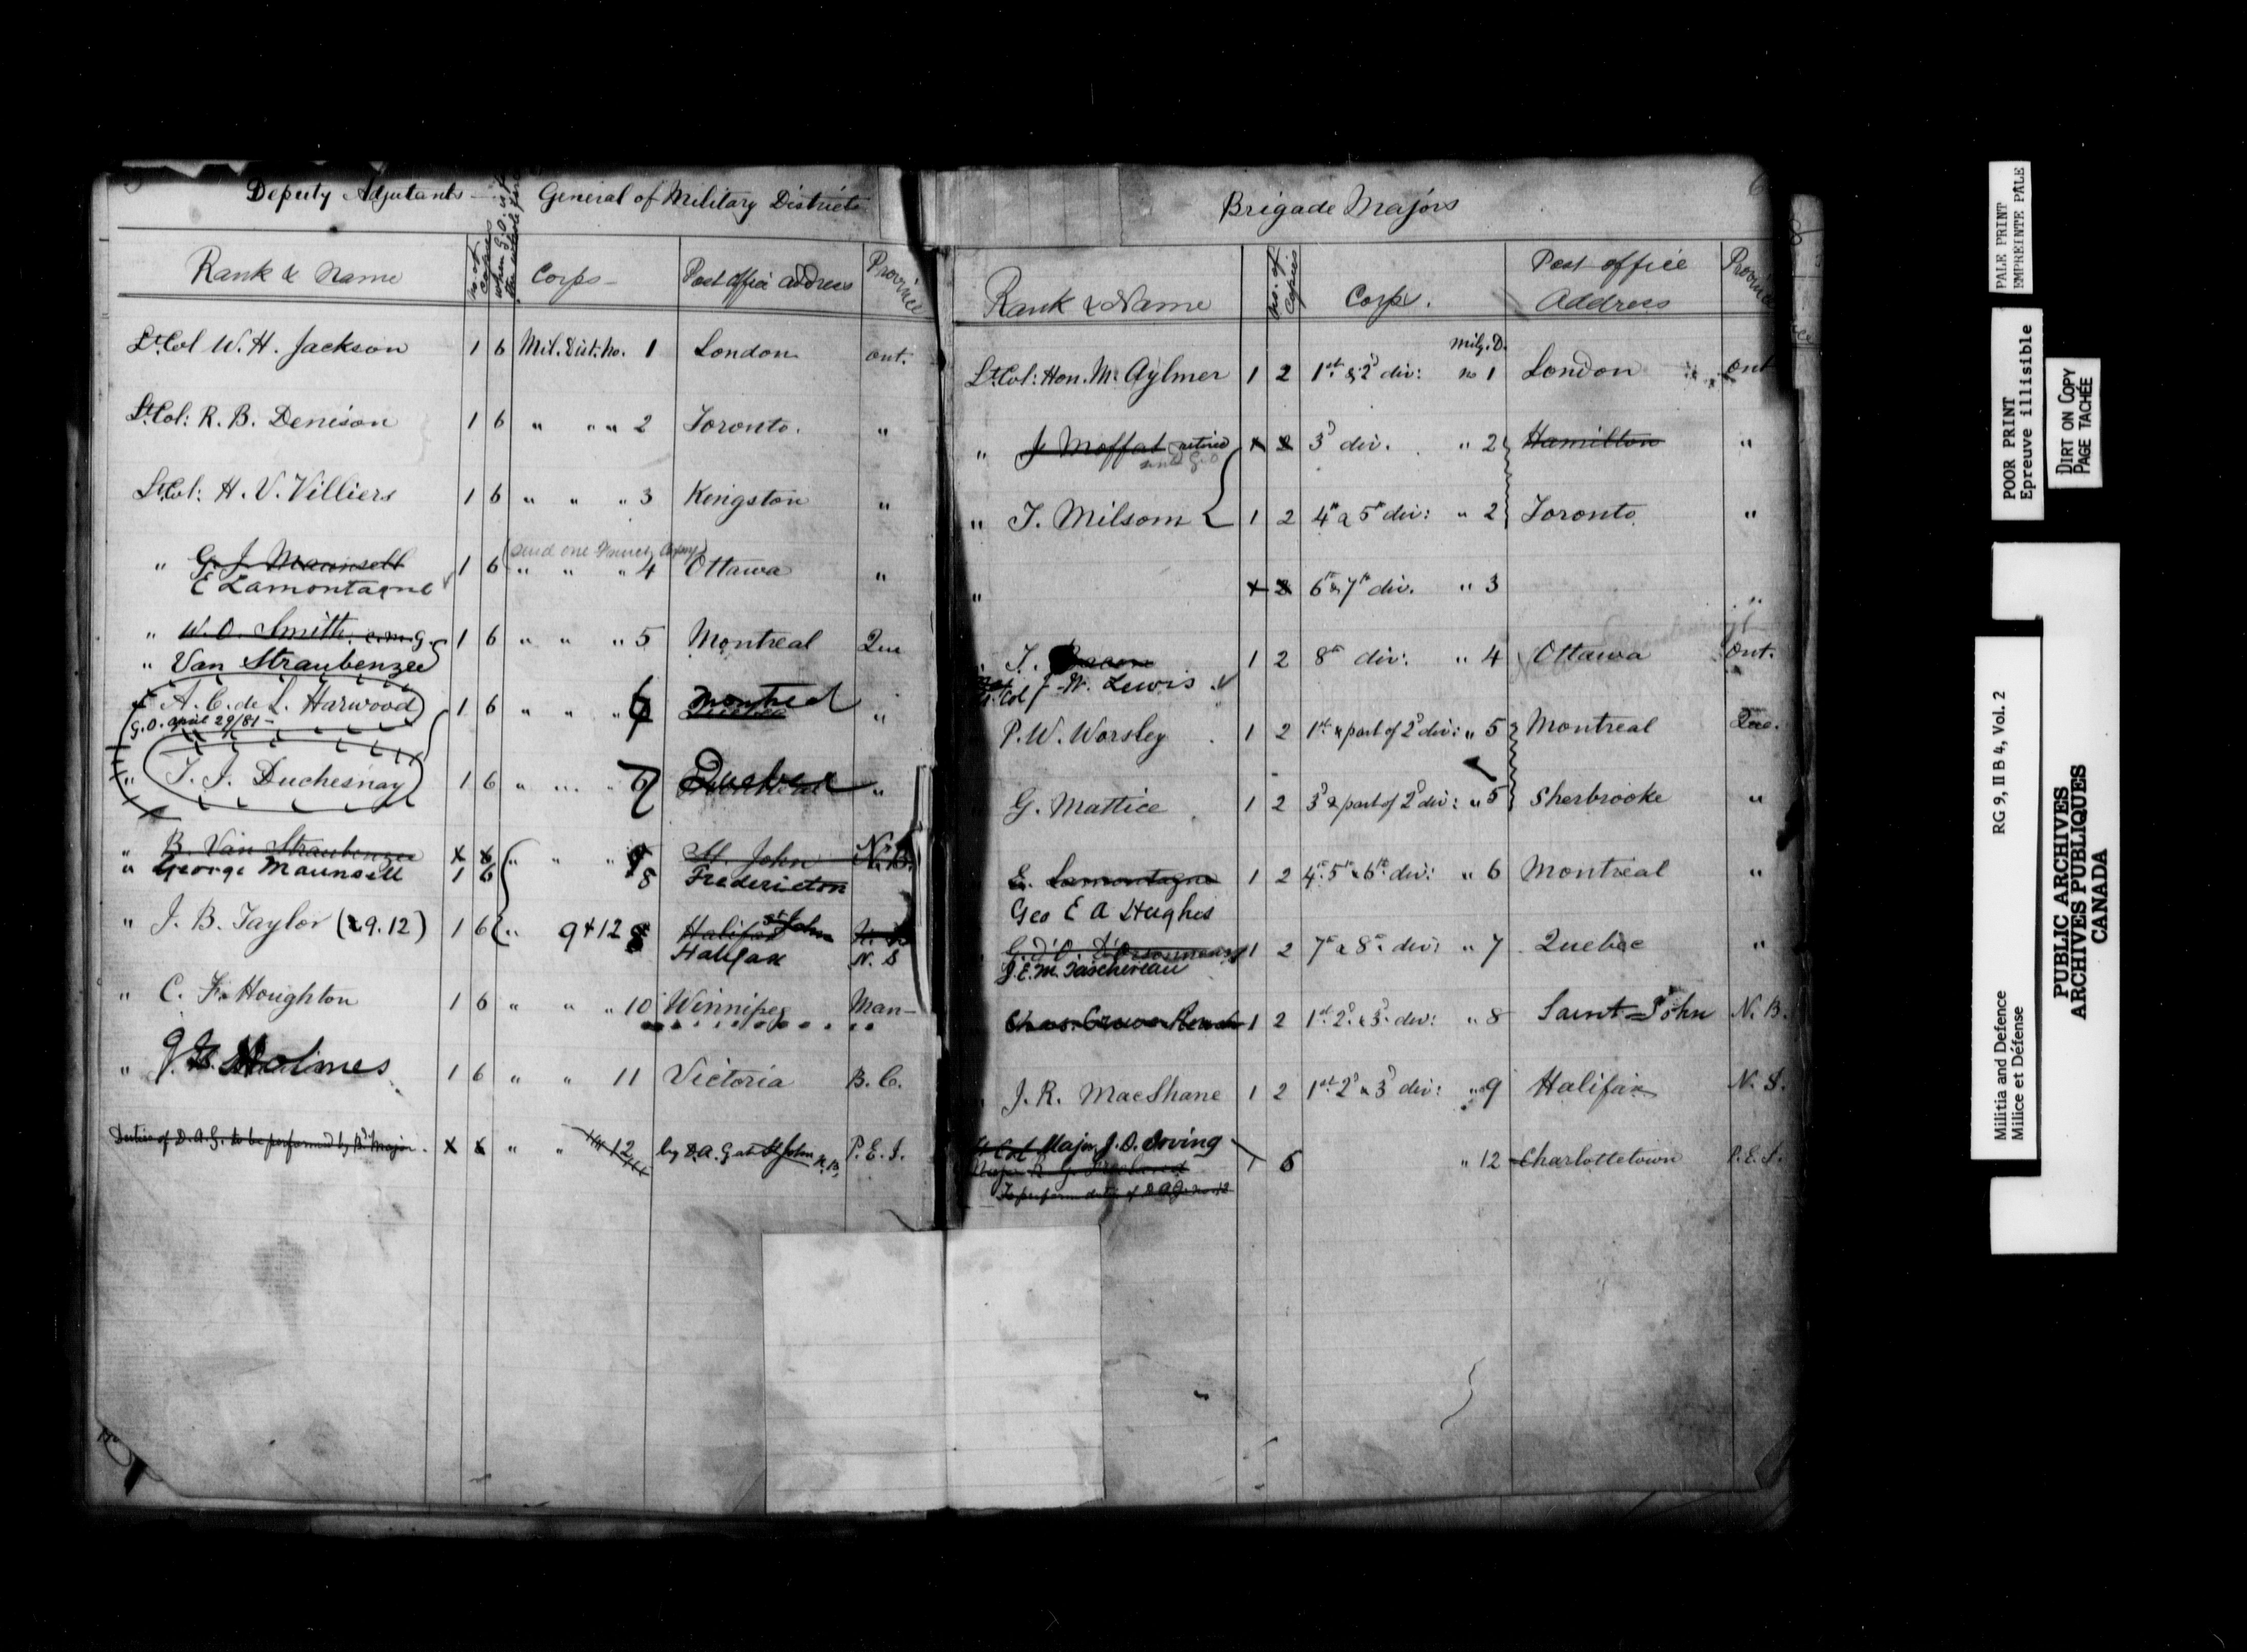 Deputy Adjutants - General of Military Districts
Rank & Name No. of Copies when G.O. is f Corps - Post Office address Province
Lt Col W. H. Jackson 1 6 Mil. Dist. No. 1 London Ont.
Lt Col: R. B. Denison 1 6 " " " 2 Toronto. "
Lt Col: H. V. Villiers 1 6 " " " 3 Kingston "
(send one French Copy)
" G. J. Maunsell 1 6 " " " 4 Ottawa "
E Lamontagne
" W. O. Smith. C.M.G. 1 6 " " " 5 Montreal Que
" Van Straubenzee
" A. C. de L. Harwood 1 6 " " " 6 Montreal "
G.O. April 29/81 -
" T. J. Duchesnay 1 6 " " " 7 Quebec "
" B. Van Straubenzee x x " " " St. John N.B.
" George Maunsell 1 6 8 Fredericton
" J. B. Taylor (& 9.12) 1 6 " 9 & 12 8 Halifax St John
Halifax N. S
" C. F. Houghton 1 6 " " " 10 Winnipeg Man -
" J. G. Holmes 1 6 " " 11 Victoria B. C.
Duties of D.A.G. to be performed by Bd Major. x x " " 12 by D.A.G at St John N.B. P.E.I.
Brigade Majors
Rank & Name No. of Copies Corps. Post office Address Province
Lt Col: Hon. M. Aylmer 1 2 1st & 2d div: Mily. D. No 1 London Ont
" J Moffat retired x 2 3d div. " 2 Hamilton "
" T. Milsom 1 2 4th & 5th div: " 2 Toronto "
" x 2 6th & 7th div. " 3 "
" T. Bacon 1 2 8th div: " 4 Ottawa Ont.
Lt. Col J. W. Lewis
P. W. Worsley 1 2 1st & part of 2d div: " 5 Montreal Que.
G. Mattice 1 2 3d & part of 2d div: " 5 Sherbrooke "
E. Lamontagne 1 2 4th 5th & 6th div: " 6 Montreal "
Geo E A Hughes
G. d'O. d'Orsonnens 1 2 7th & 8th div: " 7 Quebec "
J. E. M. Taschereau
1 2 1st 2d & 3d div: " 8 Saint John N. B.
J. R. MacShane 1 2 1st 2d & 3d div: " 9 Halifax N. S.
Lt Col Major J. D. Irving 1 6 " 12 Charlottetown P.E.I.
To perform duty of D A G. No 12
PALE PRINT
EMPREINTE PÂLE
POOR PRINT
Epreuve illisible
DIRT ON COPY
PAGE TACHÉE
Militia and Defence RG 9, II B 4, Vol. 2
Milice et Défense
PUBLIC ARCHIVES
ARCHIVES PUBLIQUES
CANADA